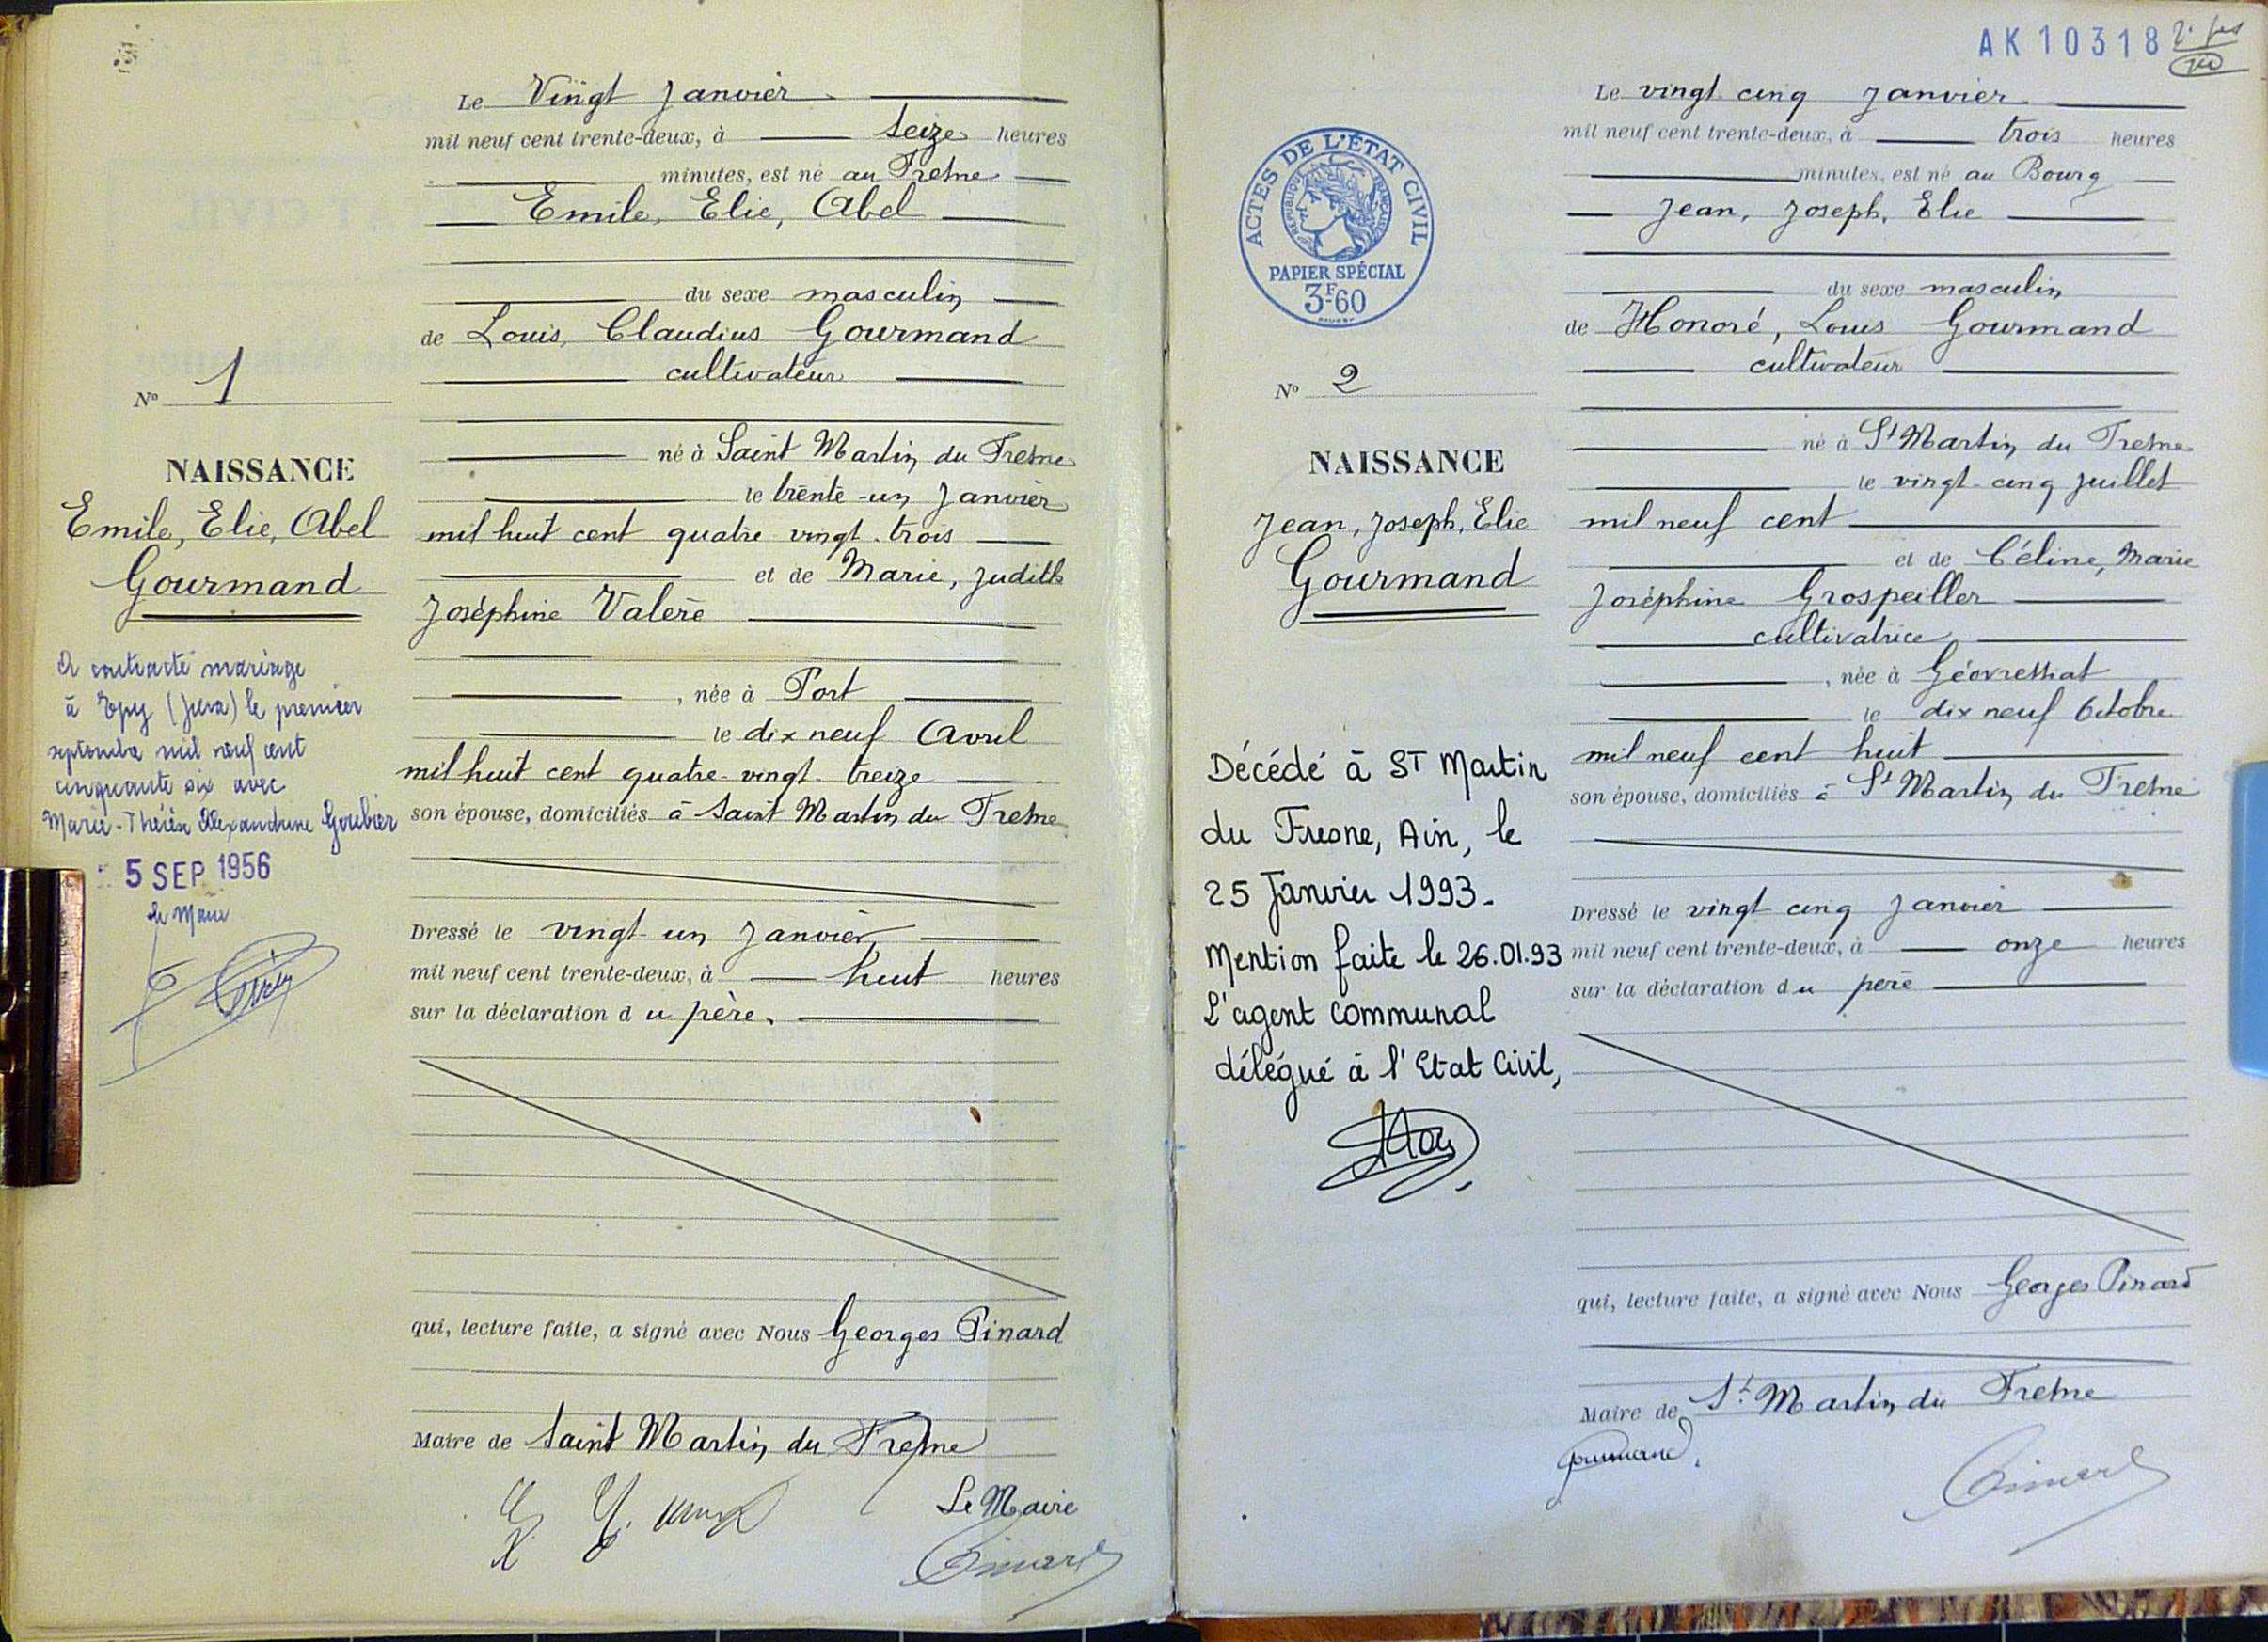 Le Vingt Janvier
mil neuf cent trente-deux, à seize heures
minutes, est né au Fresne
Emile, Elie, Abel
du sexe masculin
de Louis, Claudius Gourmand
cultivateur
né à Saint Martin du Fresne
le trente-un Janvier
mil huit cent quatre vingt-trois
et de Marie, Judith
Joséphine Valère
, née à Port
le dix neuf Avril
mil huit cent quatre-vingt-treize
son épouse, domiciliés à Saint Martin du Fresne
Dressé le vingt-un Janvier
mil neuf cent trente-deux, à huit heures
sur la déclaration du père.
qui, lecture faite, a signé avec Nous Georges Pinard
Maire de Saint Martin du Fresne
Le Maire
Pinard
Nº 1
NAISSANCE
Emile, Elie, Abel
Gourmand
A contracté mariage
à Epy (Jura) le premier
septembre mil neuf cent
cinquante six avec
Marie-Thérèse Alexandrine Goubier
5 SEP 1956
Le Maire
AK10318
ACTES DE L'ÉTAT CIVIL
RÉPUBLIQUE FRANÇAISE
PAPIER SPÉCIAL
3F60
Nº 2
NAISSANCE
Jean, Joseph, Elie
Gourmand
Décédé à ST Martin
du Fresne, Ain, le
25 Janvier 1993.
Mention faite le 26.01.93
L'agent communal
délégué à l'Etat Civil,
Le vingt cinq Janvier
mil neuf cent trente-deux, à trois heures
minutes, est né au Bourg
Jean, Joseph, Elie
du sexe masculin
de Honoré, Louis Gourmand
cultivateur
né à St Martin du Fresne
le vingt-cinq Juillet
mil neuf cent
et de Céline, Marie
Joséphine Grospeiller
cultivatrice
, née à Géovressiat
le dix neuf Octobre
mil neuf cent huit
son épouse, domiciliés à St Martin du Fresne
Dressé le vingt cinq Janvier
mil neuf cent trente-deux, à onze heures
sur la déclaration du père
qui, lecture faite, a signé avec Nous Georges Pinard
Maire de St Martin du Fresne
Gourmand
Pinard